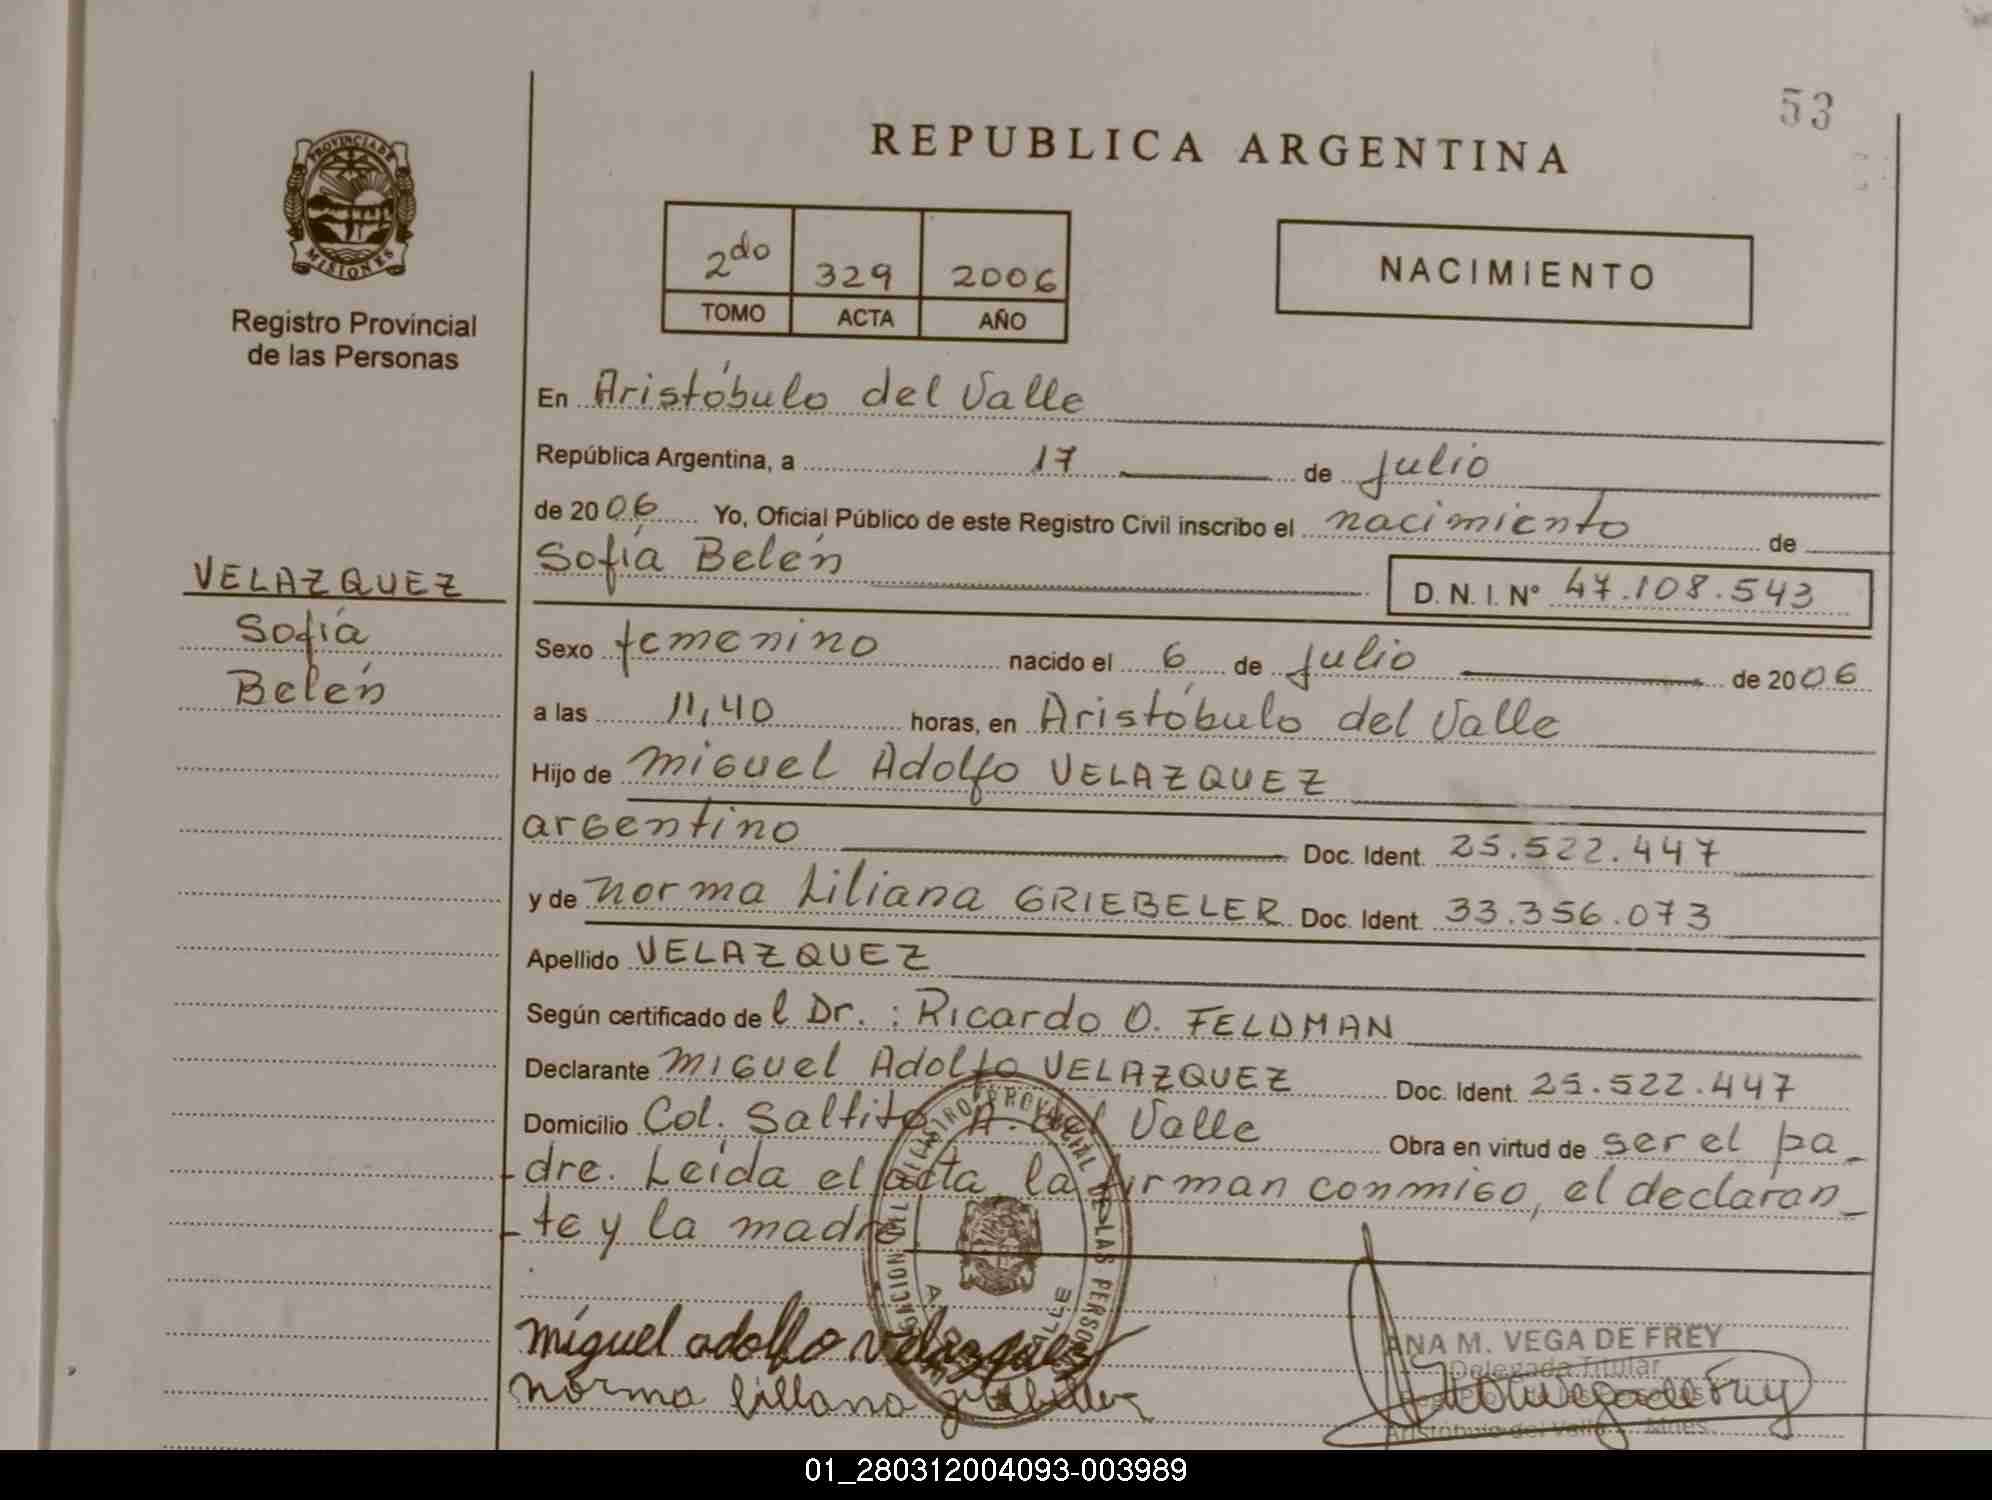 53
REPUBLICA ARGENTINA
PROVINCIA DE MISIONES
Registro Provincial
de las Personas
2do 329 2006
TOMO ACTA AÑO
NACIMIENTO
En Aristóbulo del Valle
República Argentina, a 17 de julio
de 2006 Yo, Oficial Público de este Registro Civil inscribo el nacimiento de
Sofía Belén D. N. I. Nº 47.108.543
VELAZQUEZ
Sofía
Belén
Sexo femenino nacido el 6 de julio de 2006
a las 11,40 horas, en Aristóbulo del Valle
Hijo de Miguel Adolfo VELAZQUEZ
argentino Doc. Ident. 25.522.447
y de Norma Liliana GRIEBELER Doc. Ident. 33.356.073
Apellido VELAZQUEZ
Según certificado del Dr.: Ricardo O. FELDMAN
Declarante Miguel Adolfo VELAZQUEZ Doc. Ident. 25.522.447
Domicilio Col. Saltito A. del Valle Obra en virtud de ser el pa_
dre. Leída el acta, la firman conmigo, el declaran_
te y la madre.
miguel adolfo velazquez
norma
ANA M. VEGA DE FREY
Delegada Titular
Aristóbulo del Valle - Mnes.
01_280312004093-003989